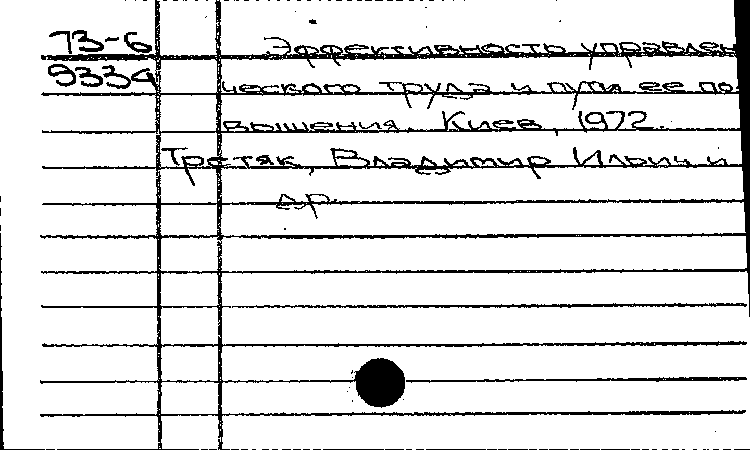 73-6 Эффективность управлен
9334 ческого труда и пути ее по-
вышения. Киев, 1972.
Третяк, Владимир Ильич и
др.